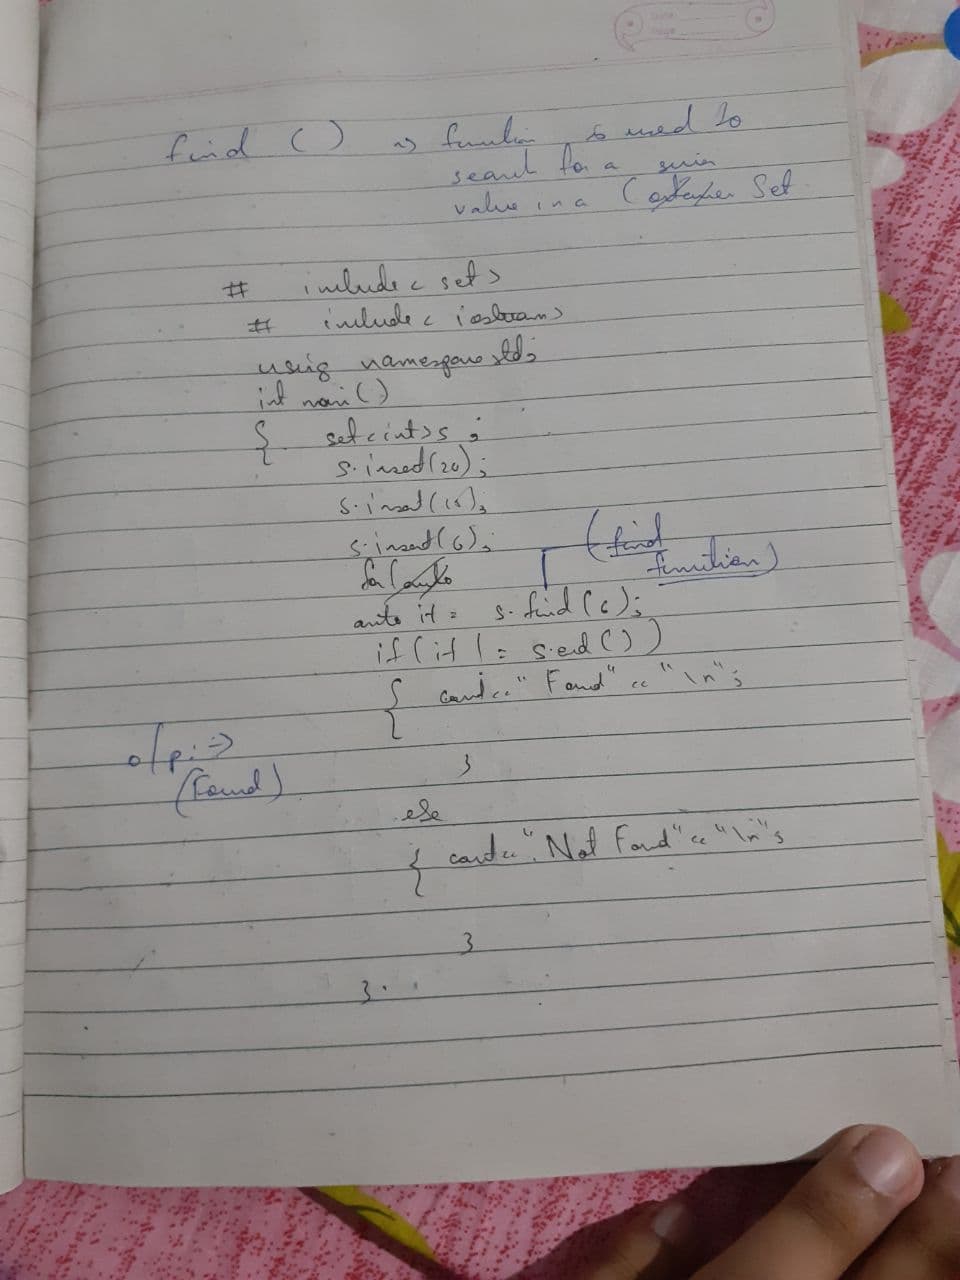 find () => function is used to
search for a given
value in a Container Set
# include < set >
# include < iostream >
using namespace std;
int main()
{ set<int>s ;
s.insert(20);
s.insert(15);
s.insert(6);
for(auto
(find
function)
auto it = s.find(6);
if (it != s.end())
{ cout<<"Found"<<"\n";
o/p:=>
(Found)
}
else
{ cout<<"Not Found"<<"\n";
}
}